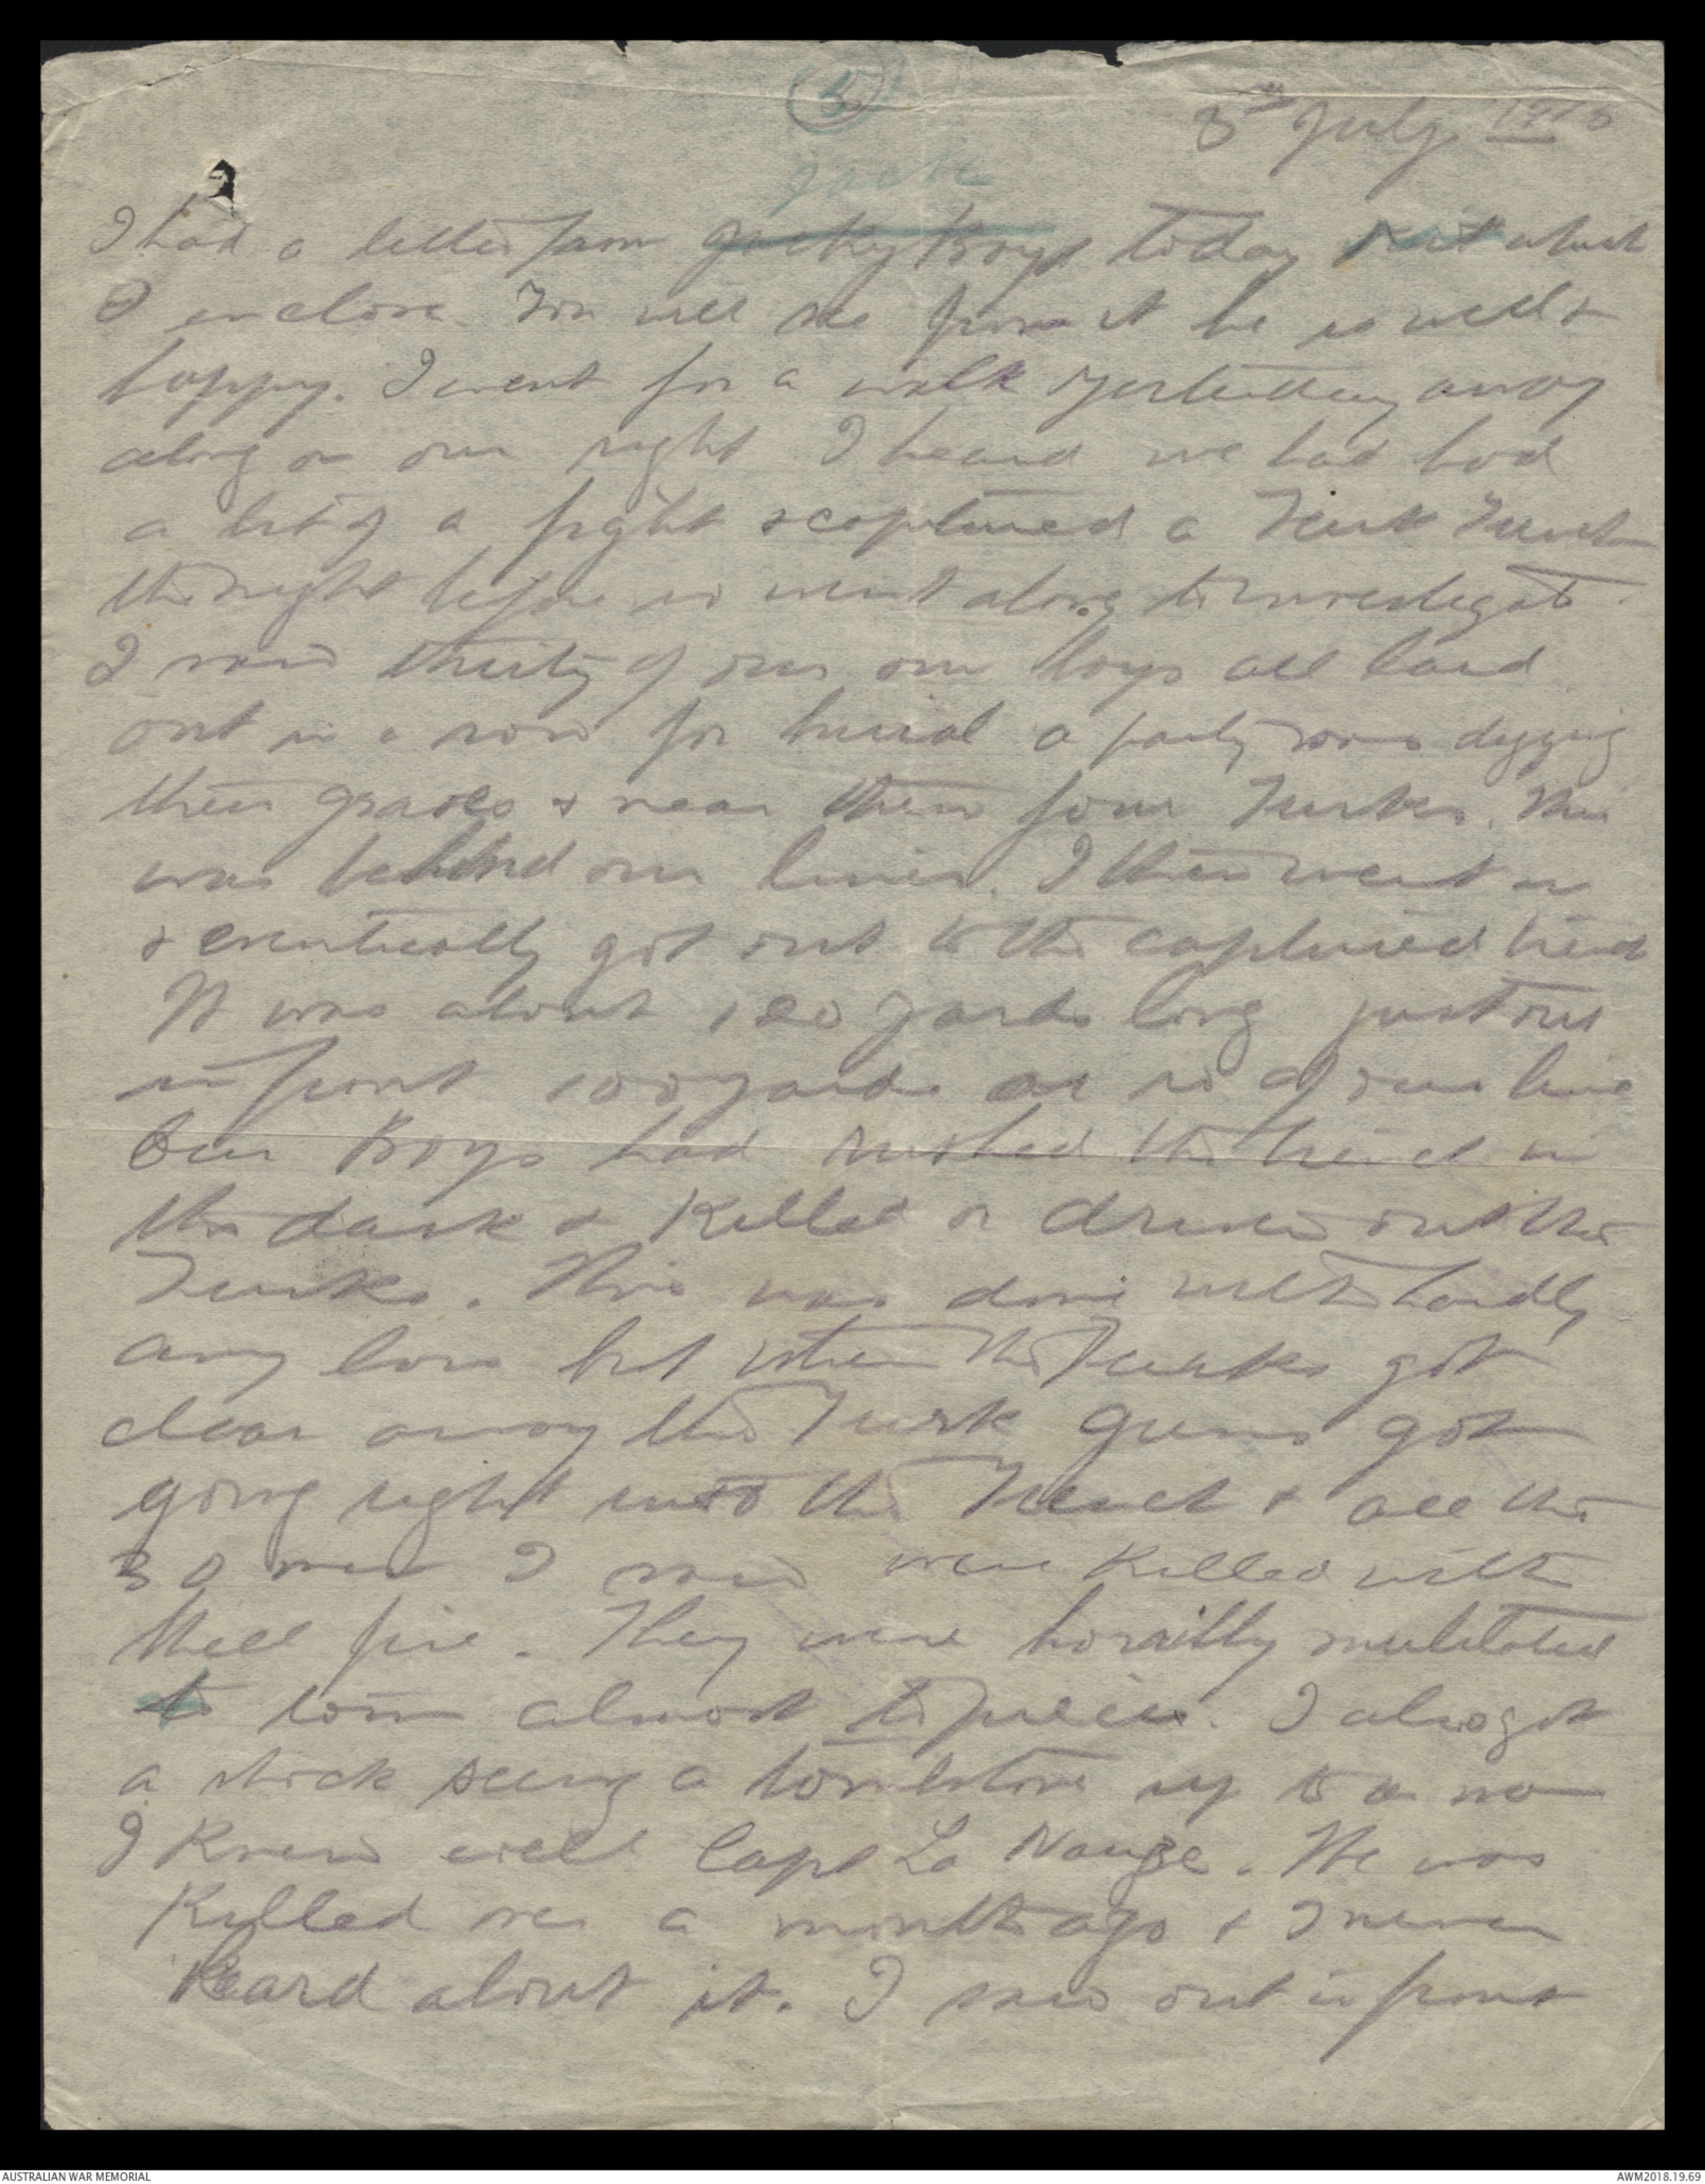 (5)
3rd July 1915
Jack
I had a letter from Jacky Boy today which
I enclose. You will see from it he is well &
happy. I went for a walk yesterday away
along on our right I heard we had had
a bit of a fight & captured a Turk Trench
the night before so went along to investigate.
I saw thirty of our own boys all laid
out in a row for burial a party was digging
their graves & near them four Turks. This
was behind our lines. I then went on
& eventually got out to the captured trench
It was about 120 yards long just out
in front 100 yards or so of our line
Our Boys had rushed the trench in
the dark & Killed or driven out the
Turks. This was done with hardly
any loss but when the Turks got
clear away the Turk guns got
going right into the Trench & all the
30 men I saw were Killed with
shell fire. They were horribly mutilated
torn almost to pieces. I also got
a shock seeing a tombstone up to a man
I Knew well Capt La Nauze. He was
Killed over a month ago & I never
heard about it. I saw out in front
AUSTRALIAN WAR MEMORIAL
AWM2018.19.69